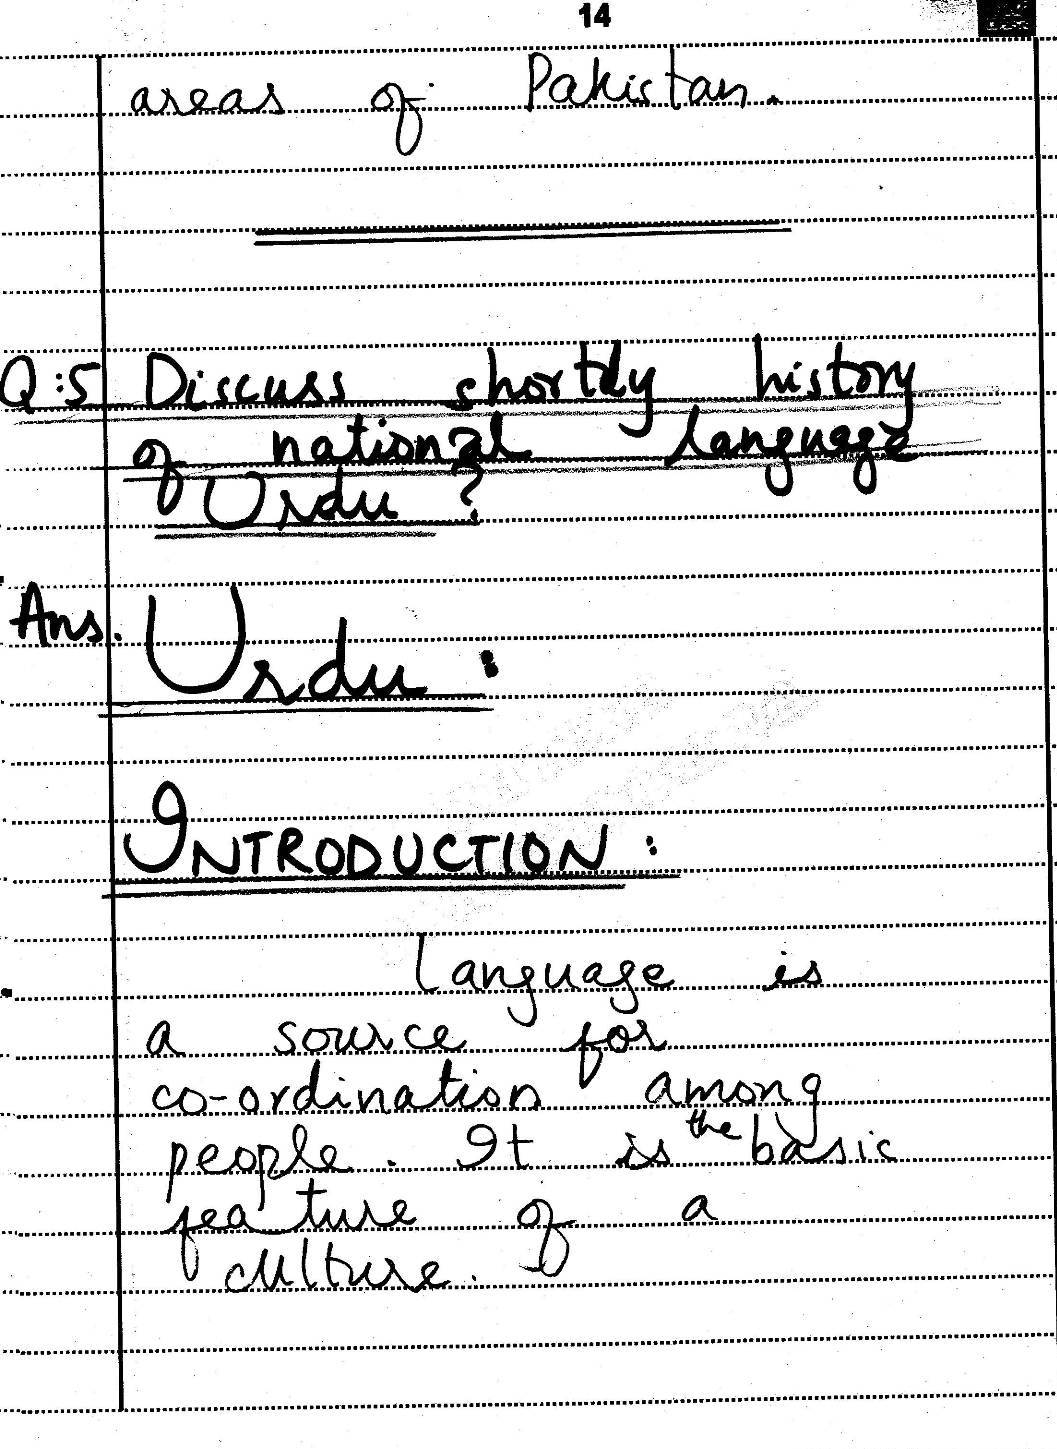 14
areas of Pakistan.
Q:5 Discuss shortly history
of national language
Urdu ?
Ans. Urdu :
INTRODUCTION :
Language is
a source for
co-ordination among
people. It is the basic
feature of a
culture.